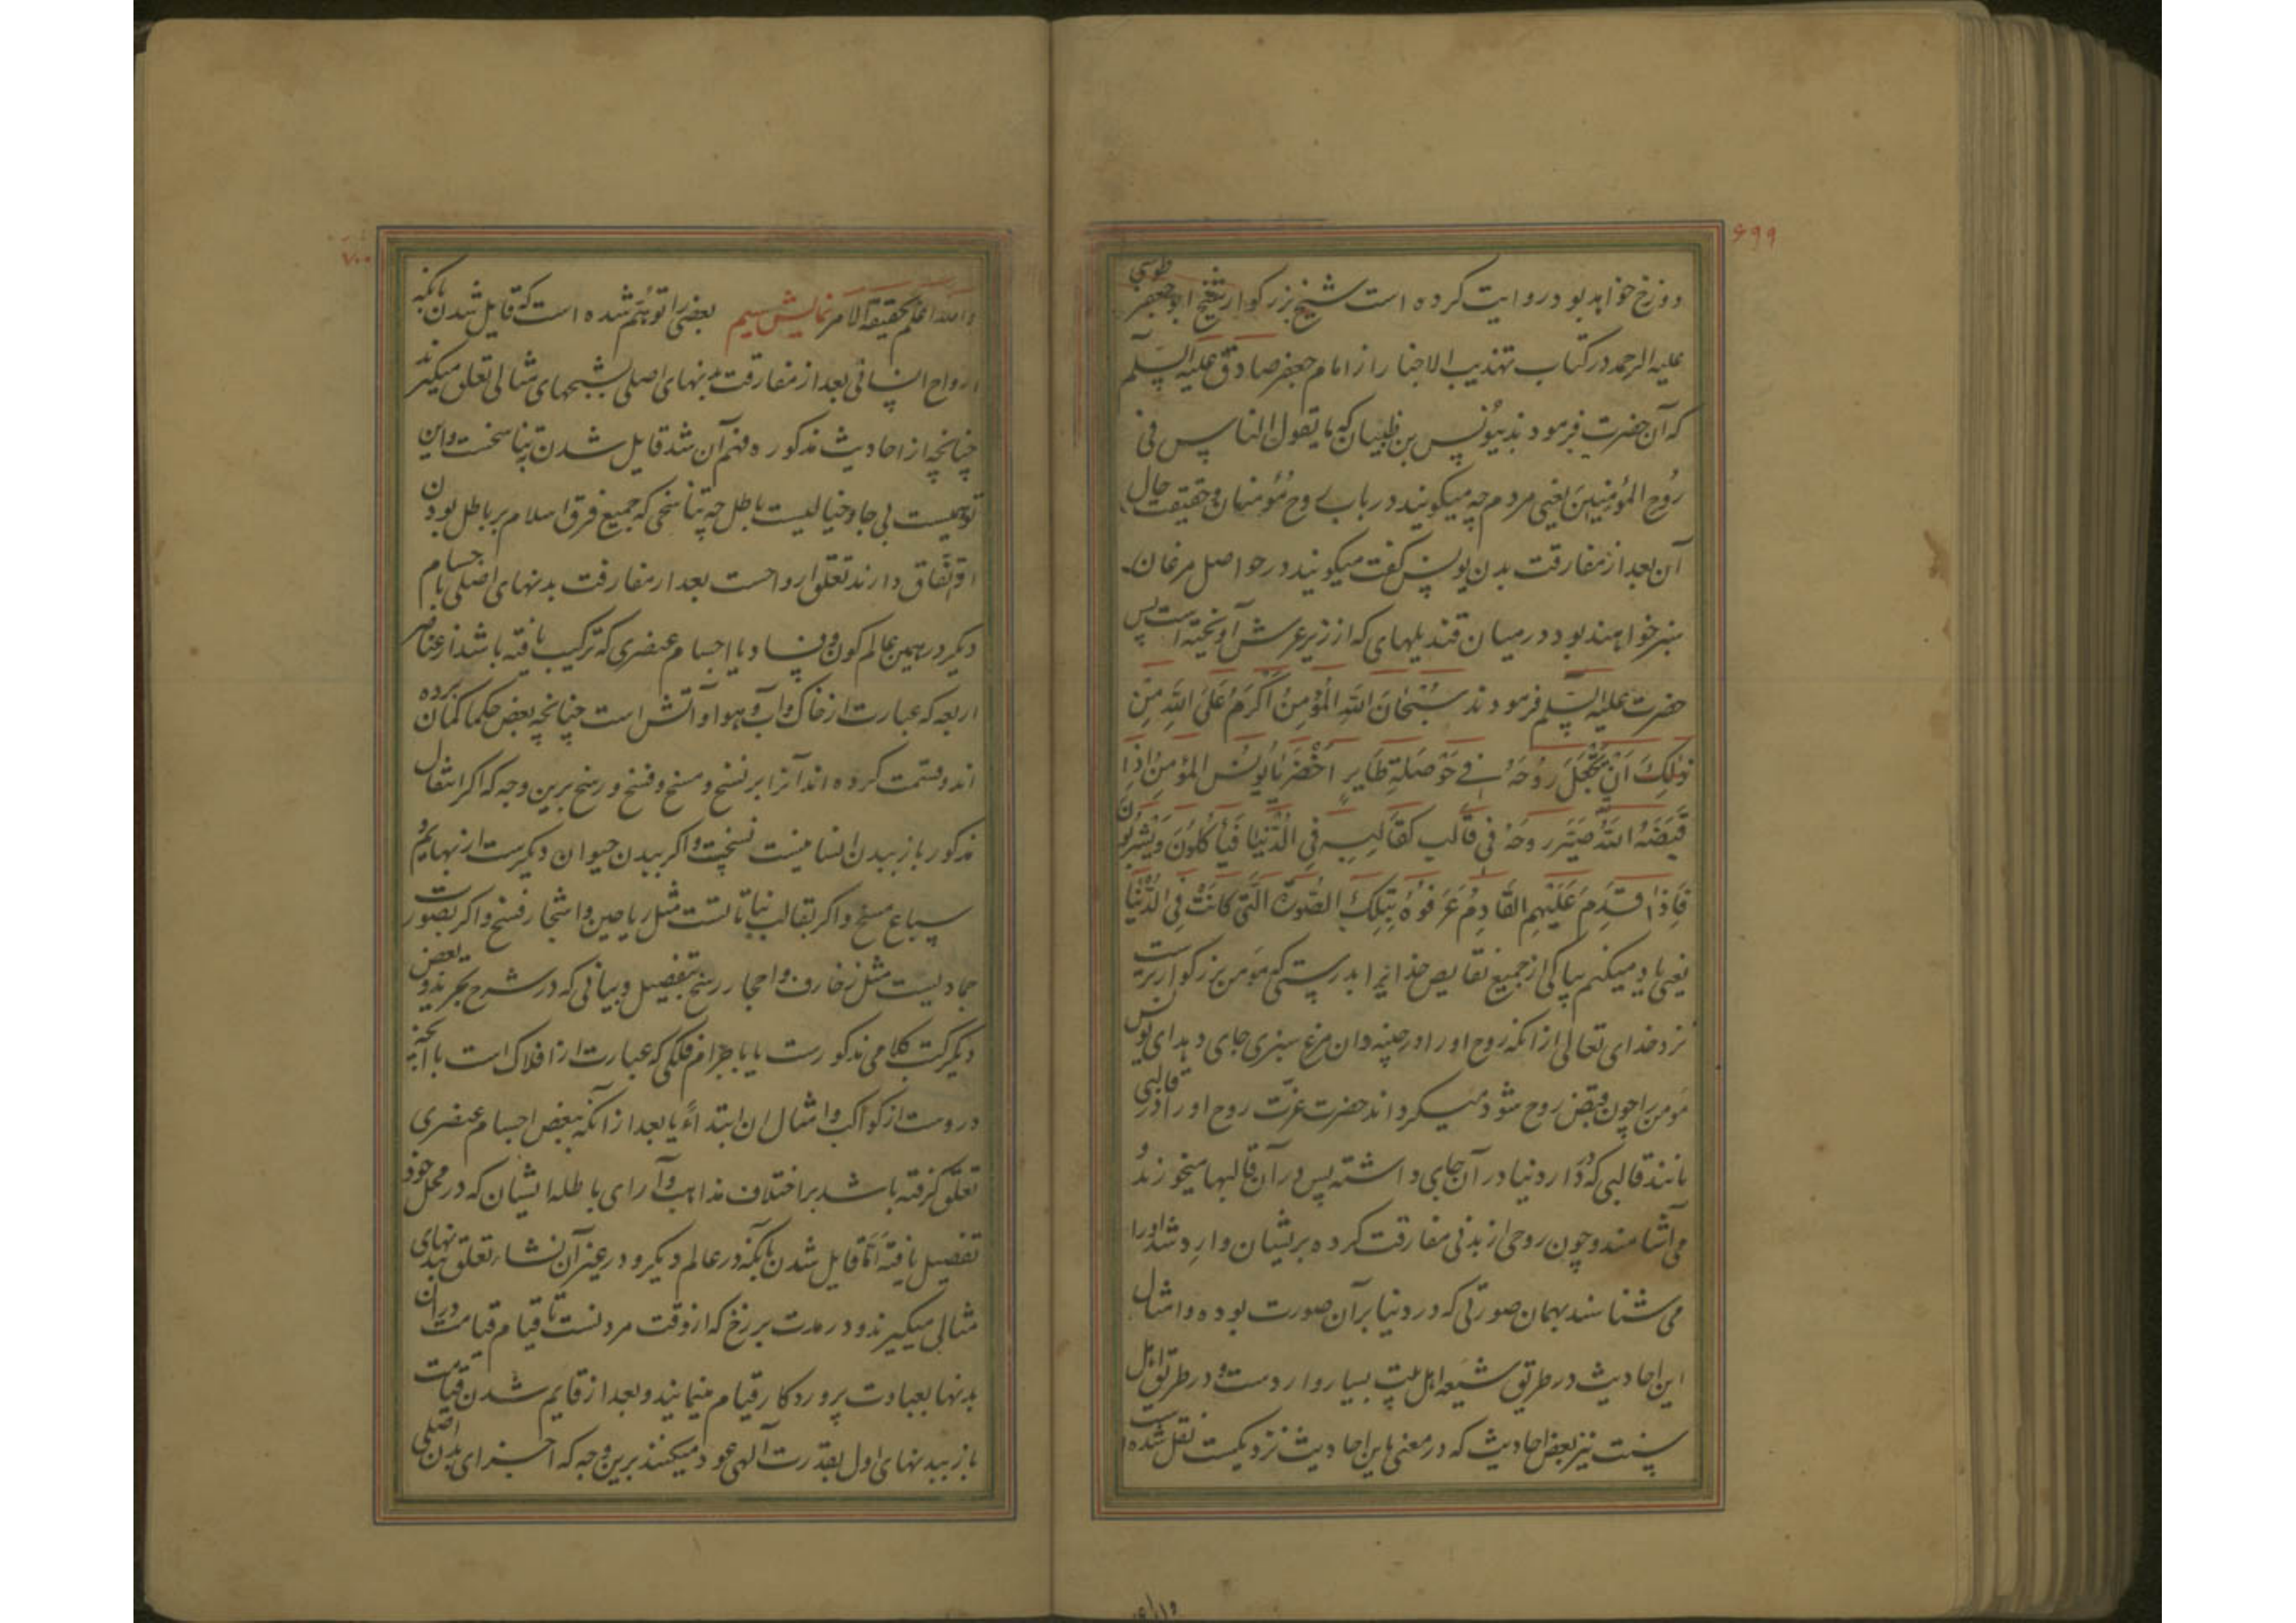 ۶۹۹
دوزخ خواهد بود و روایت کرده است شیخ بزرگوار شیخ ابو جعفر طوسی
علیه الرحمه در کتاب تهذیب الاخبار از امام جعفر صادق علیه السلم
که آن حضرت فرمودند بیونس بن ظبیان که ما یقول الناس فی
رُوح المُؤمِنینَ یعنی مردم چه میکویند در باب روح مُؤمنان و حقیقت حال
آن بعد از مفارقت بدن یونس کفت میکویند در حواصل مرغان
سبز خواهند بود در میان قندیلهای که از زیر عرش آویخته است پس
حضرت علیه السلم فرمودند سُبْحٰانَ اللهِ المُؤمِنُ اَکْرَمُ عَلَی اللهِ مِنْ
ذٰلِکَ اَنْ یَجْعَلَ رُوحَهُ فی حَوْصَلَةِ طَایِرٍ اَخْضَرَ یٰا یُونُس المؤمِنُ اِذٰا
قَبَضَهُ اللهُ صَیَّرَ روحَهُ فی قٰالَبٍ کَقٰالَبِهِ فِی الدُّنْیٰا فَیَأکُلُونَ وَیَشْرَبُونَ
فَاِذٰا قَدِمَ عَلَیْهِمِ القَادِمُ عَرَفُوهُ بِتِلْکَ الصُّورَة الَّتی کٰانَتْ فِی الدُّنْیٰا
یعنی یاد میکنم بپاکی از جمیع نقایص خدایرا بدرستی که مؤمن بزرکوارتر است
نزد خدای تعالی از آنکه روح او را در چینه دان مرغ سبزی جای دهد ای یونس
مؤمن را چون قبض روح شود میکرداند حضرت عزّت روح او را در قالبی
مانند قالبی که در دار دنیا در آن جای داشته پس در آن قالبها میخورند و
می آشامند و چون روحی از بدنی مفارقت کرده بریشان وارد شد او را
می شناسند بهمان صورتی که در دنیا بر آن صورت بوده و امثال
این احادیث در طریق شیعه اهل بیت بسیار واردست و در طریق اهل
سنت نیز بعض احادیث که در معنی باین احادیث نزدیکست نقل شده است
۷۰۰
والله اعلم بحقیقة الامر نمایش سیم بعضی را توهّم شده است که قایل شدن بآنکه
ارواح انسانی بعد از مفارقت بدنهای اصلی بشبحهای مثالی تعلق میکیرند
چنانچه از احادیث مذکوره فهم آن شد قایل شدن بتناسخست و این
توهمیست بی جا و خیالیست باطل چه تناسخی که جمیع فرق اسلام بر باطل بودن
او اتّفاق دارند تعلق ارواحست بعد از مفارقت بدنهای اصلی باجسام
دیکر در همین عالم کون و فساد یا اجسام عنصری که ترکیب یافته باشد از عناصر
اربعه که عبارت از خاک و آب و هوا و آتش است چنانچه بعض حکما کمان برده
اند و قسمت کرده اند آنرا بر نسخ و مسخ و فسخ و رسخ برین وجه که اگر انتقال
مذکور باز ببدن انسانیست نسخست و اکر ببدن حیوان دیکرست از بهایم و
سباع مسخ و اکر بقالب نباتاتست مثل ریاحین و اشجار فسخ و اکر بصورت
جمادیست مثل زخارف و احجار رسخ بتفصیل و بیانی که در شرح تجرید و بعض
دیکر کتب کلامی مذکورست یا باجرام فلکی که عبارت از افلاک است با آنچه
دروست از کواکب و امثال ان ابتداءً یا بعد از آنکه ببعض اجسام عنصری
تعلّق کرفته باشد بر اختلاف مذاهب و آرای باطله ایشان که در محل خود
تفصیل یافته اَمّا قایل شدن بآنکه در عالم دیکر و در غیر آن نشاء تعلق ببدنهای
مثالی میکیرند و در مدت برزخ که از وقت مردنست تا قیام قیامت در آن
بدنها بعبادت پروردکار قیام مینمایند و بعد از قایم شدن قیامت
باز ببدنهای اول بقدرت آلهی عود میکنند برین وجه که اجزای بدن اصلی